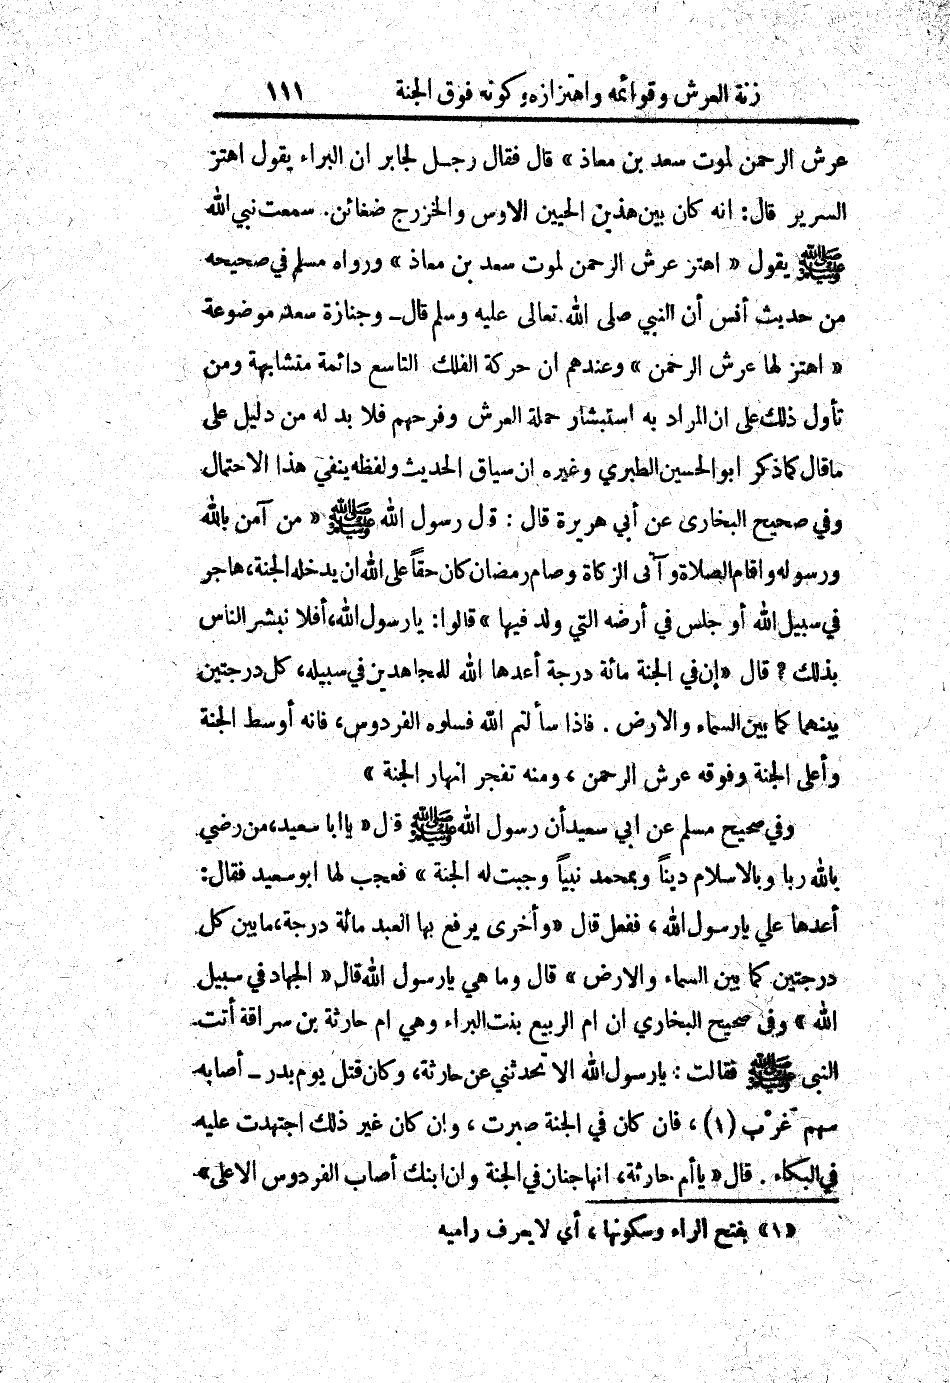 زنة العرش وقوائمه واهتزازه وكونه فوق الجنة ١١١
عرش الرحمن لموت سعد بن معاذ » قال فقال رجـل لجابر ان البراء يقول اهتز
السرير قال: انه كان بين هذين الحيين الاوس والخزرج ضغائن. سمعت نبي الله
ﷺ يقول « اهتز عرش الرحمن لموت سعد بن معاذ » ورواه مسلم في صحيحه
من حديث أنس أن النبي صلى الله تعالى عليه وسلم قال ـ وجنازة سعد موضوعة
« اهتز لها عرش الرحمن » وعندهم ان حركة الفلك التاسع دائمة متشابهة ومن
تأول ذلك على ان المراد به استبشار حملة العرش وفرحهم فلا بد له من دليل على
ماقال كما ذكر ابو الحسين الطبري وغيره ان سياق الحديث ولفظه ينفي هذا الاحتمال
وفي صحيح البخارى عن أبي هريرة قال : قل رسول الله ﷺ « من آمن بالله
ورسوله واقام الصلاة وآتى الزكاة وصام رمضان كان حقاً على الله ان يدخله الجنة، هاجر
في سبيل الله أو جلس في أرضه التي ولد فيها » قالوا: يارسول الله، أفلا نبشر الناس
بذلك ؟ قال «إن في الجنة مائة درجة أعدها الله للمجاهدين في سبيله، كل درجتين
بينهما كما بين السماء والارض . فاذا سألتم الله فسلوه الفردوس، فانه أوسط الجنة
وأعلى الجنة وفوقه عرش الرحمن ، ومنه تفجر انهار الجنة »
وفي صحيح مسلم عن ابي سعيد أن رسول الله ﷺ قل « يا ابا سعيد، من رضي
بالله ربا وبالاسلام ديناً وبمحمد نبياً وجبت له الجنة » فعجب لها ابو سعيد فقال:
أعدها علي يارسول الله ، ففعل قال «وأخرى يرفع بها العبد مائة درجة، مابين كل
درجتين كما بين السماء والارض » قال وما هي يارسول الله قال « الجهاد في سبيل
الله » وفي صحيح البخاري ان ام الربيع بنت البراء وهي ام حارثة بن سراقة أتت
النبي ﷺ فقالت : يارسول الله الا تحدثني عن حارثة، وكان قتل يوم بدر ـ أصابه
سهم غَرْب (١) ، فان كان في الجنة صبرت ، وان كان غير ذلك اجتهدت عليه
في البكاء . قال « ياأم حارثة، انها جنان في الجنة وان ابنك أصاب الفردوس الاعلى»
«١» بفتح الراء وسكونها ، أي لا يعرف راميه